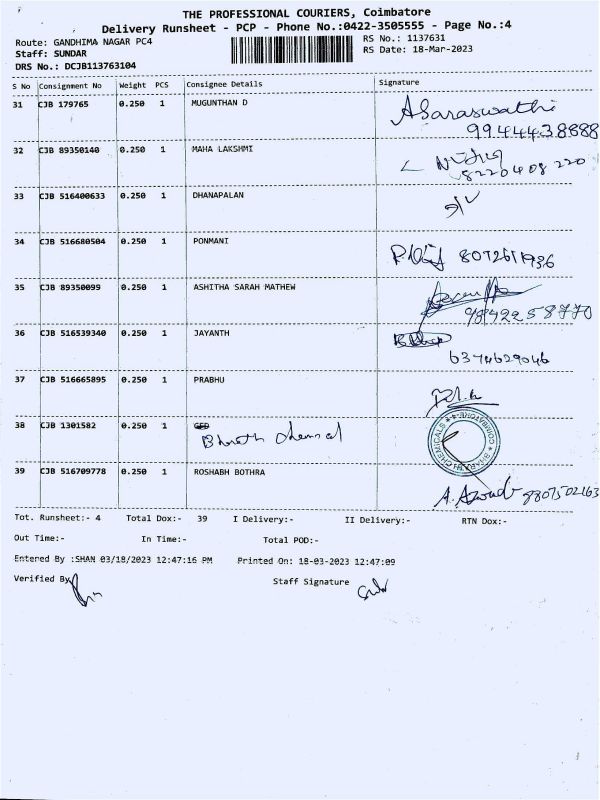 THE PROFESSIONAL COURIERS, Coimbatore
Delivery Runsheet - PCP - Phone No.:0422-3505555 - Page No.:4
Route: GANDHIMA NAGAR PC4
Staff: SUNDAR
DRS No.: DCJB113763104
RS No.: 1137631
RS Date: 18-Mar-2023
S No Consignment No Weight PCS Consignee Details Signature
31 CJB 179765 0.250 1 MUGUNTHAN D A Saraswathi
9944438888
32 CJB 89350140 0.250 1 MAHA LAKSHMI
8220408220
33 CJB 516400633 0.250 1 DHANAPALAN
34 CJB 516680504 0.250 1 PONMANI
35 CJB 89350099 0.250 1 ASHITHA SARAH MATHEW
9842258770
36 CJB 516539340 0.250 1 JAYANTH
6374629046
37 CJB 516665895 0.250 1 PRABHU
38 CJB 1301582 0.250 1
Bharath chemical
39 CJB 516709778 0.250 1 ROSHABH BOTHRA
Tot. Runsheet:- 4 Total Dox:- 39 I Delivery:- II Delivery:- RTN Dox:-
Out Time:- In Time:- Total POD:-
Entered By :SHAN 03/18/2023 12:47:16 PM Printed On: 18-03-2023 12:47:09
Verified By Staff Signature